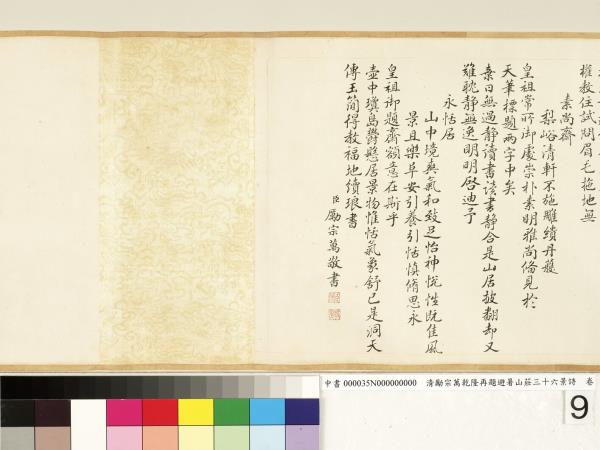 權教住試開眉毛拖地無
素尚齋
梨峪清軒不施雕繢丹雘
皇祖常所御處崇朴素明雅尚備見於
天筆標題兩字中矣
素日無過靜讀書讀書靜合是山居披翻却又
雖耽靜無逸明明啓迪予
永恬居
山中境與氣和致足怡神悦性既佳風
景且樂阜安引養引恬慎脩思永
皇祖御題齋額意在斯乎
壺中瓊島鬱懸居景物惟恬氣象舒已是洞天
傳玉簡得教福地續琅書
臣勵宗萬敬書
中書 000035N000000000 清勵宗萬乾隆再題避暑山莊三十六景詩 卷
9